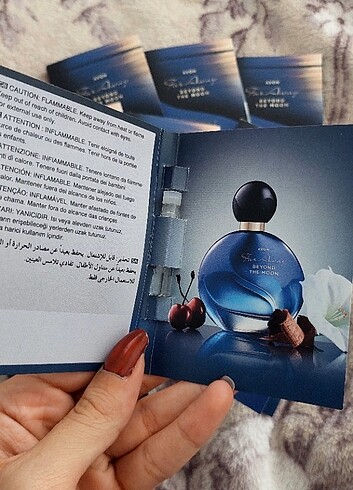 AVON
Far Away
BEYOND
THE MOON
AVON
Far Away
BEYOND
THE MOON
CAUTION: FLAMMABLE. Keep away from heat or flame
Keep out of reach of children. Avoid contact with eyes.
For external use only.
ATTENTION : INFLAMMABLE. Tenir éloigné de toute
source de chaleur ou des flammes. Tenir hors de la portée
des enfants.
ATTENZIONE: INFIAMMABILE. Tenere lontano da fiamme
e fonti di calore. Tenere fuori dalla portata dei bambini
ATENCIÓN: INFLAMABLE. Mantener alejado del fuego
calor. Mantener fuera del alcance de los niños.
ATENÇÃO: INFLAMÁVEL. Manter afastado de fontes de
calor. Manter fora do alcance das crianças
YANICIDIR. Isı veya alevden uzak tutunuz.
erişebileceği yerlerden uzak tutunuz.
harici kullanım içindir.
تحذير: قابل للاشتعال. يحفظ بعيدًا عن مصادر الحرارة أو
يحفظ بعيدًا عن متناول الأطفال. تفادي تلامس العينين.
للاستعمال الخارجي فقط.
AVON
Far Away
BEYOND
THE MOON